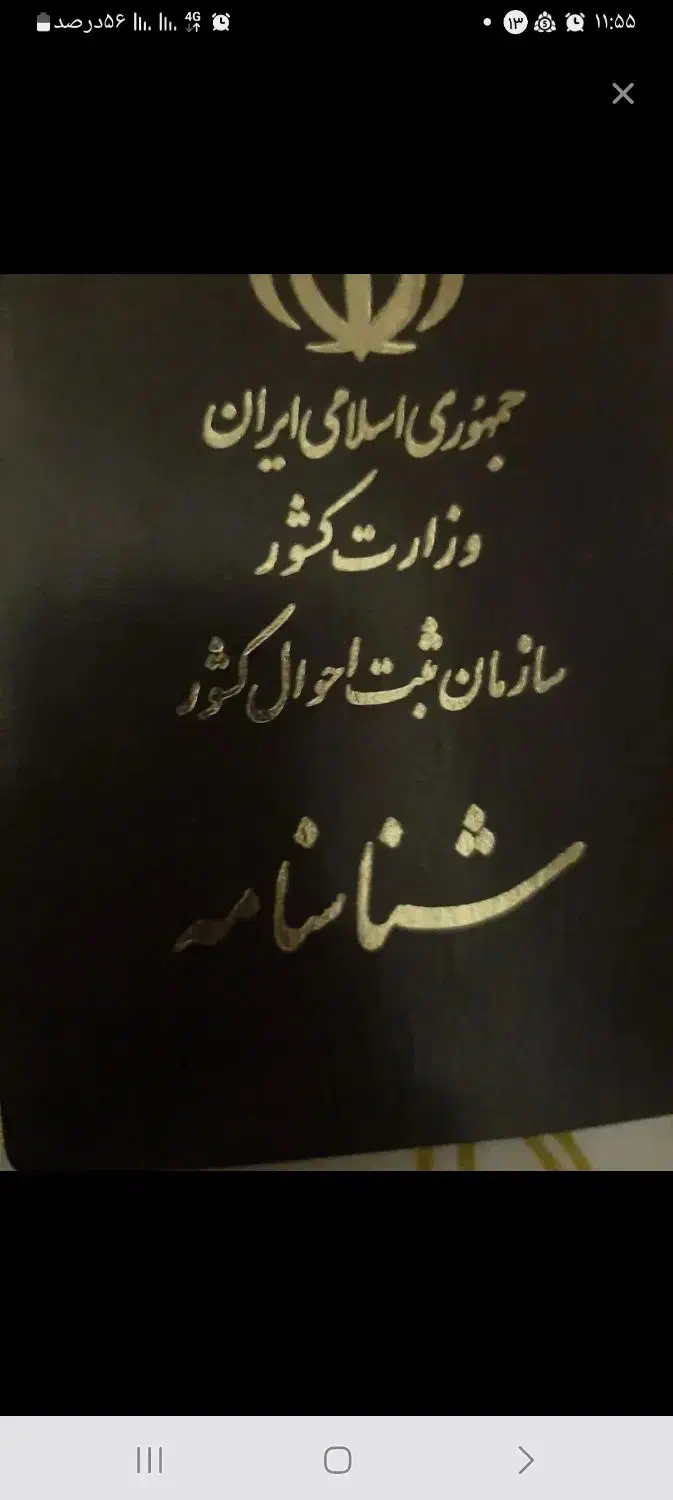 ۵۶درصد 4G ۱۳ ۱۱:۵۵
جمهوری اسلامی ایران
وزارت کشور
سازمان ثبت احوال کشور
شناسنامه